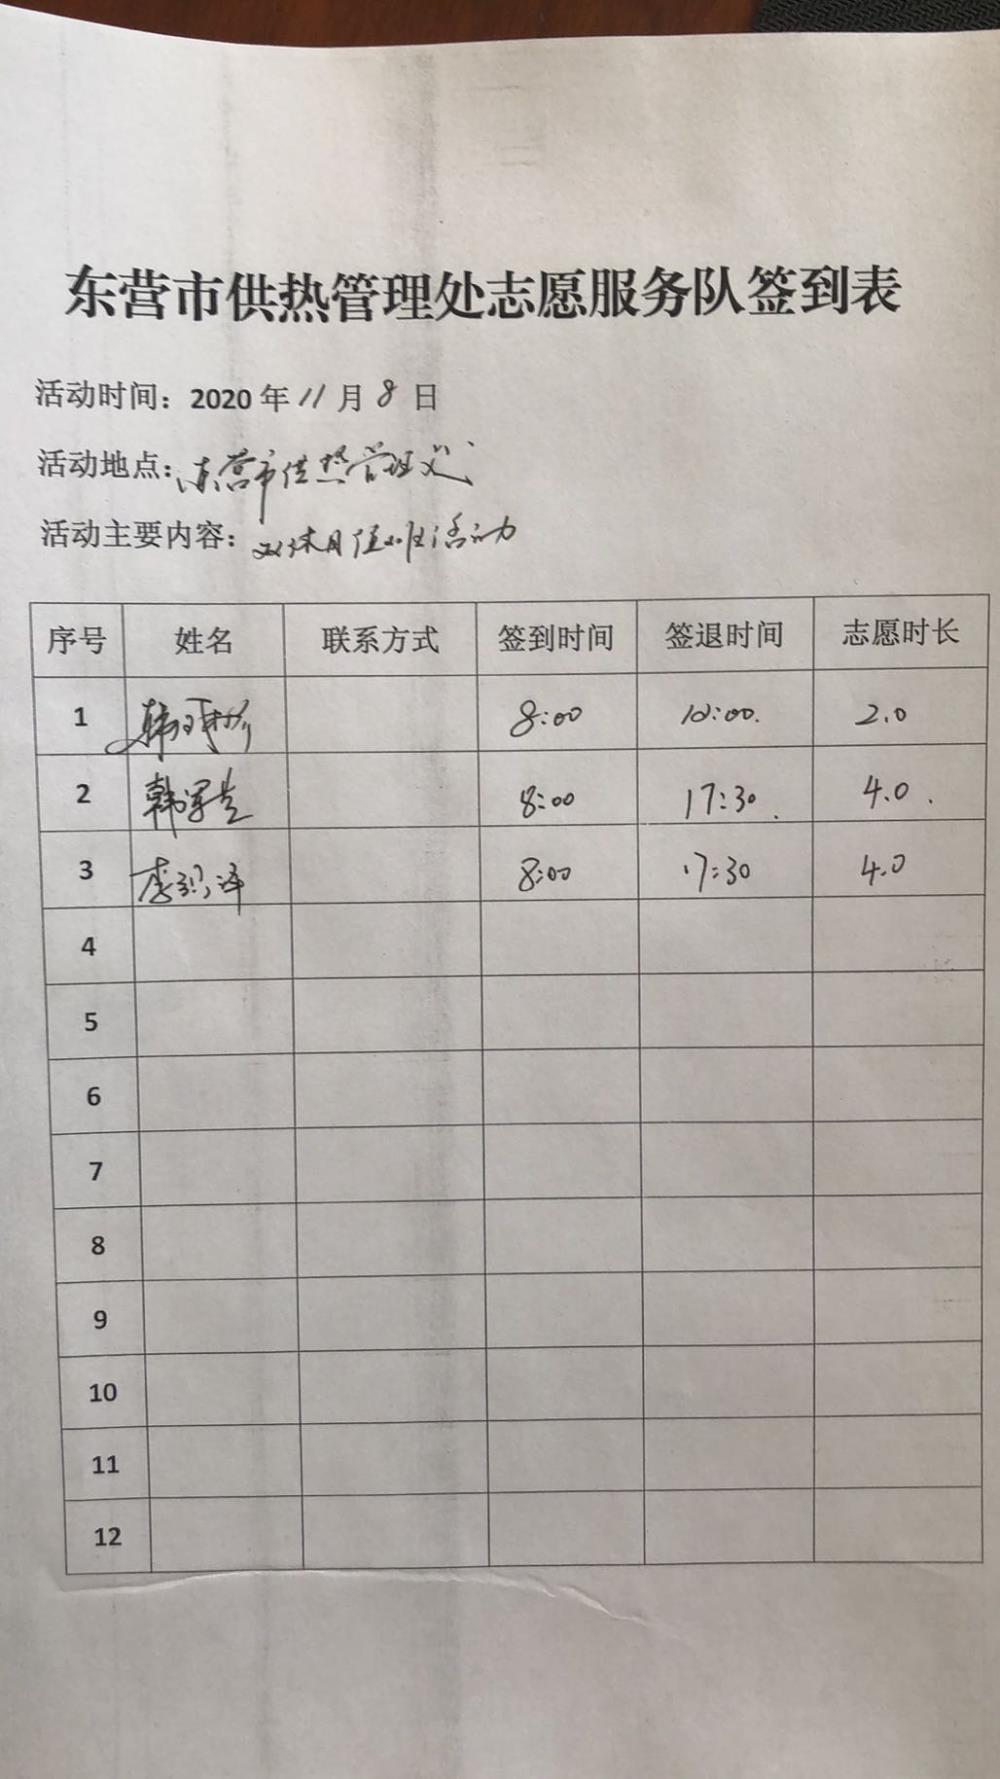 东营市供热管理处志愿服务队签到表
活动时间：2020年11月8日
活动地点：东营市供热管理处
活动主要内容：双休日值班活动
序号 姓名 联系方式 签到时间 签退时间 志愿时长
1 韩 8:00 10:00. 2.0
2 韩军 8:00 17:30. 4.0.
3 李 泽 8:00 17:30 4.0
4
5
6
7
8
9
10
11
12